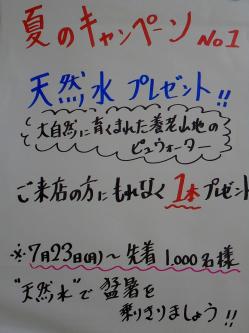 夏のキャンペーン No1
天然水 プレゼント!!
大自然に育くまれた養老山地の
ピュウォーター
ご来店の方にもれなく1本プレゼント
※7月23日(月)〜先着1,000名様
"天然水"で猛暑を
乗りきりましょう!!